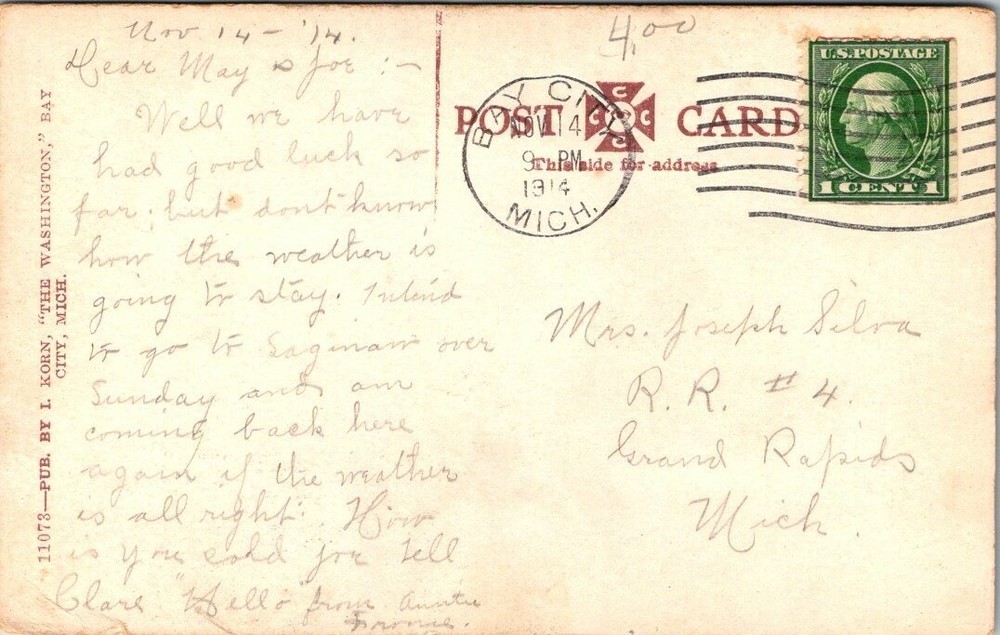 Nov 14 - '14.
Dear May & Joe :-
Well we have
had good luck so
far. but don't know
how the weather is
going to stay. Intend
to go to Saginaw over
Sunday and am
coming back here
again if the weather
is all right. How
is you cold Joe Tell
Clare "Hello" from Auntie
4.00
POST CARD
This side for address
BAY CITY
NOV 14
9 PM
1914
MICH.
U.S. POSTAGE
1 CENT 1
Mrs. Joseph Silva
R. R. # 4.
Grand Rapids
Mich.
11073—PUB. BY I. KORN, "THE WASHINGTON," BAY
CITY, MICH.